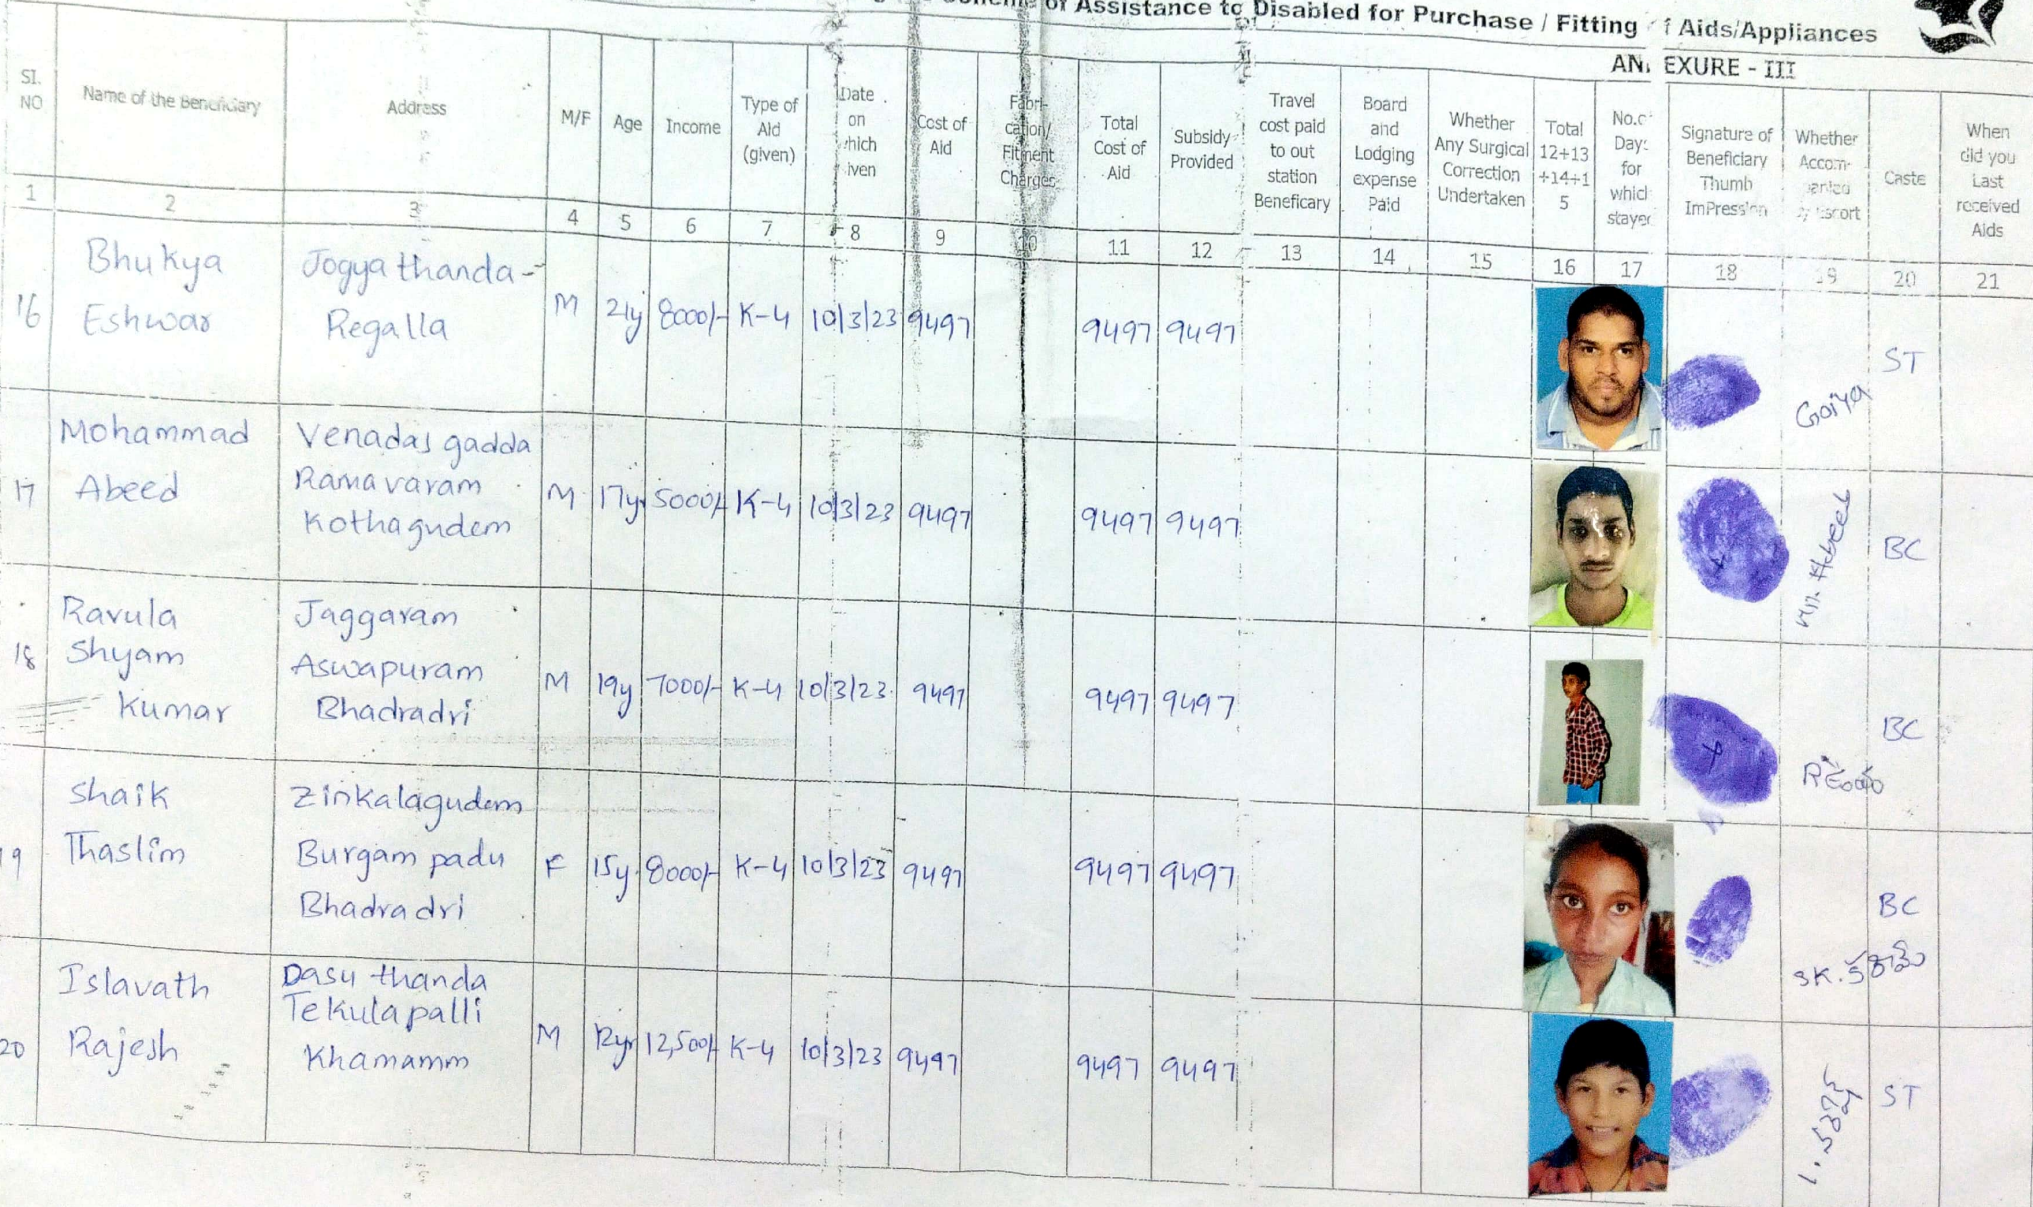 of Assistance to Disabled for Purchase / Fitting of Aids/Appliances
ANNEXURE - III
SI. NO
Name of the Beneficiary
Address
M/F
Age
Income
Type of Aid (given)
Date on which given
Cost of Aid
Fabrication/ Fitment Charges
Total Cost of Aid
Subsidy Provided
Travel cost paid to out station Beneficary
Board and Lodging expense Paid
Whether Any Surgical Correction Undertaken
Total 12+13 +14+1 5
No.of Days for which stayed
Signature of Beneficiary Thumb ImPression
Whether Accom- panied by Escort
Caste
When did you Last received Aids
1 2 3 4 5 6 7 8 9 10 11 12 13 14 15 16 17 18 19 20 21
16 Bhukya Eshwar
Jogya thanda - Regalla
M 21y 8000/- K-4 10/3/23 9497 9497 9497 Goiya ST
17 Mohammad Abeed
Venadas gadda Ramavaram Kothagudem
M 17yr 5000/- K-4 10/3/23 9497 9497 9497 BC
18 Ravula Shyam Kumar
Jaggaram Aswapuram Bhadradri
M 19y 7000/- K-4 10/3/23 9497 9497 9497 BC
19 Shaik Thaslim
Zinkalagudem Burgam padu Bhadradri
F 15y 8000/- K-4 10/3/23 9497 9497 9497 BC
SK.
20 Islavath Rajesh
Dasu thanda Tekulapalli Khamamm
M 12yr 12,500/- K-4 10/3/23 9497 9497 9497 ST